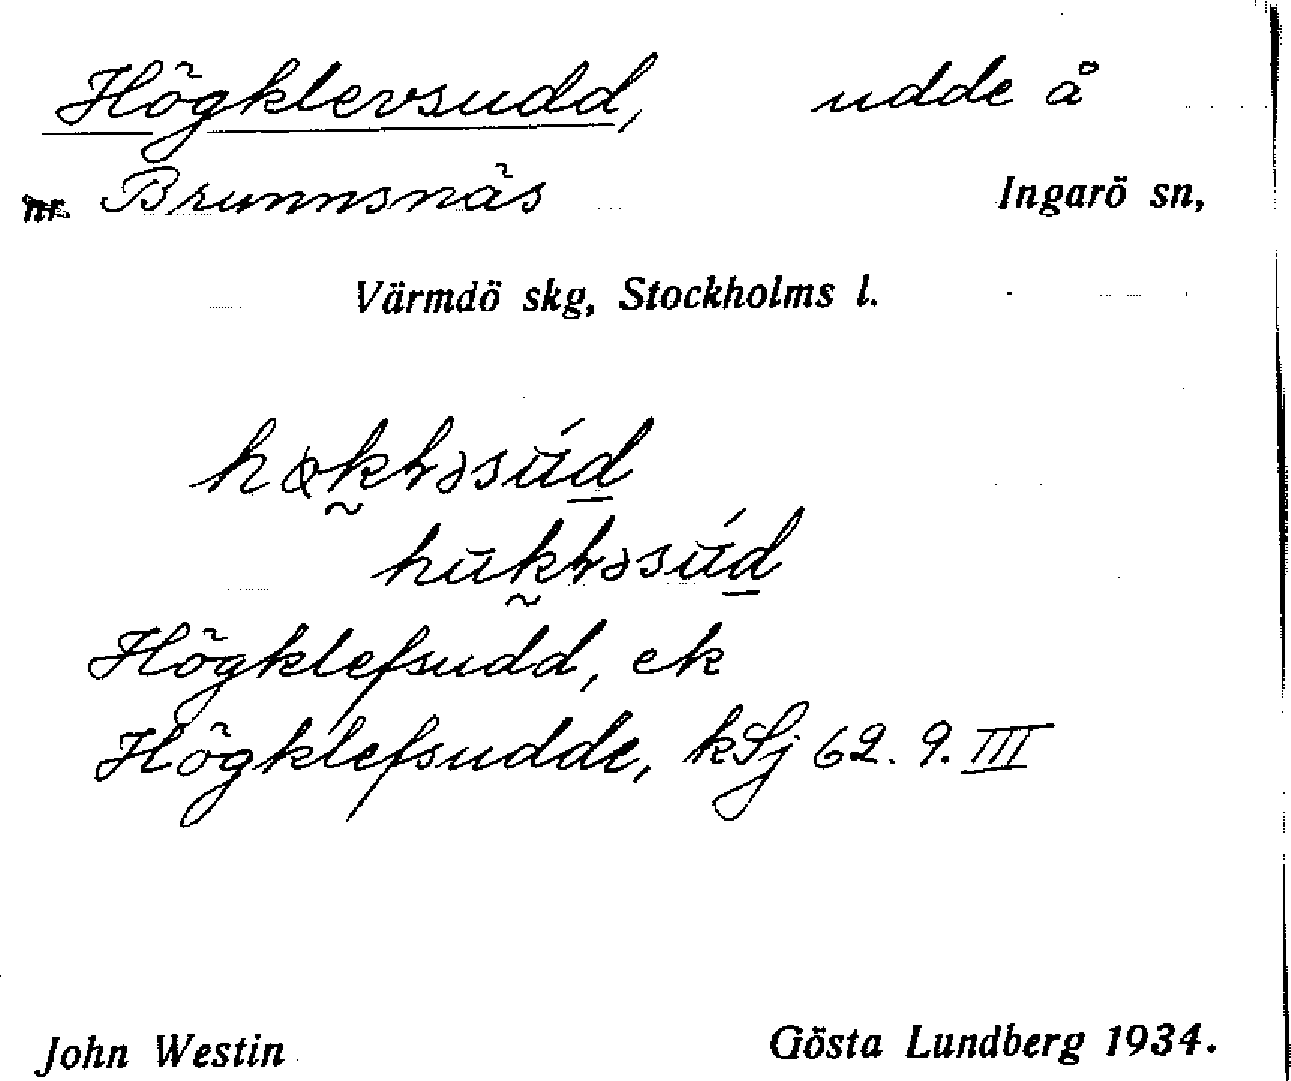 Högklevsudd, udde å
Brunnsnäs Ingarö sn,
Värmdö skg, Stockholms l.
Högklefsudd, ek
Högklefsudde, kSj 62. 9. III
John Westin Gösta Lundberg 1934.